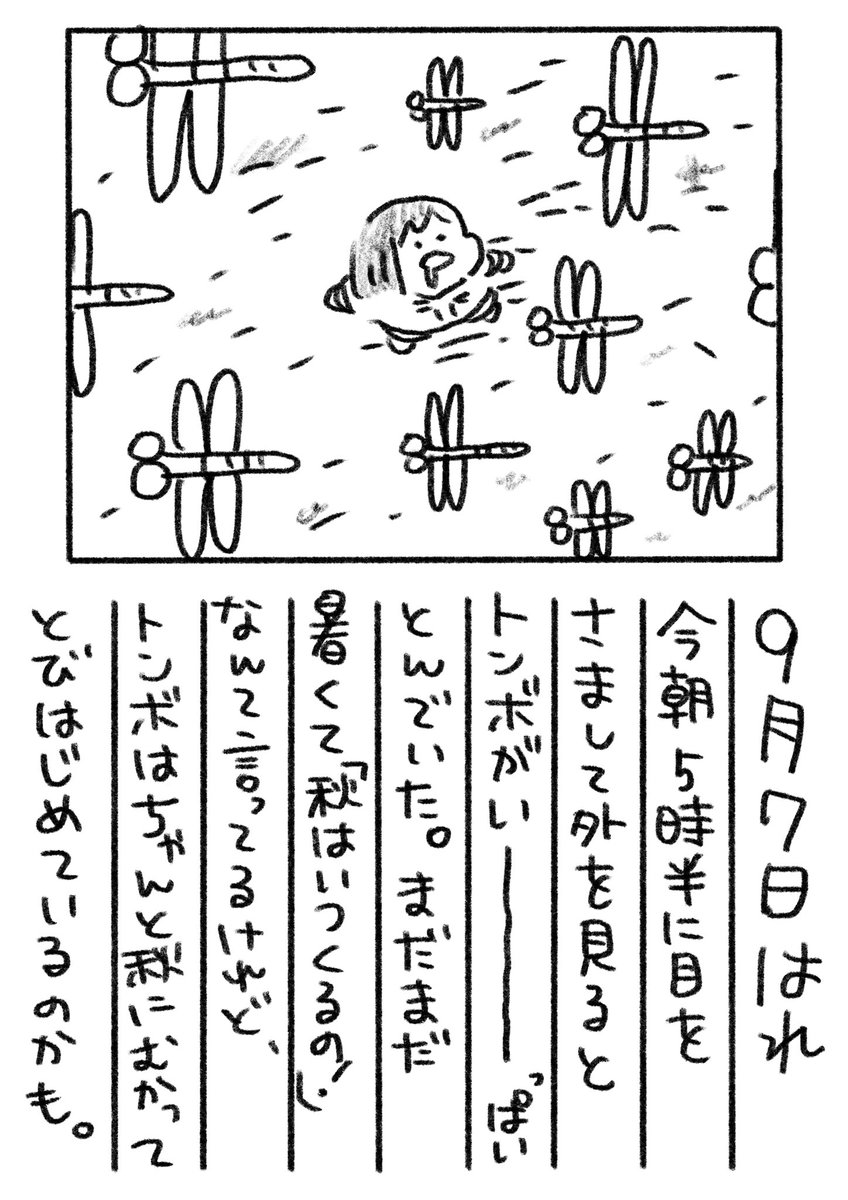 9月7日はれ
今朝5時半に目を
さまして外を見ると
トンボがい――――っぱい
とんでいた。まだまだ
暑くて「秋はいつくるの!」
なんて言ってるけれど、
トンボはちゃんと秋にむかって
とびはじめているのかも。